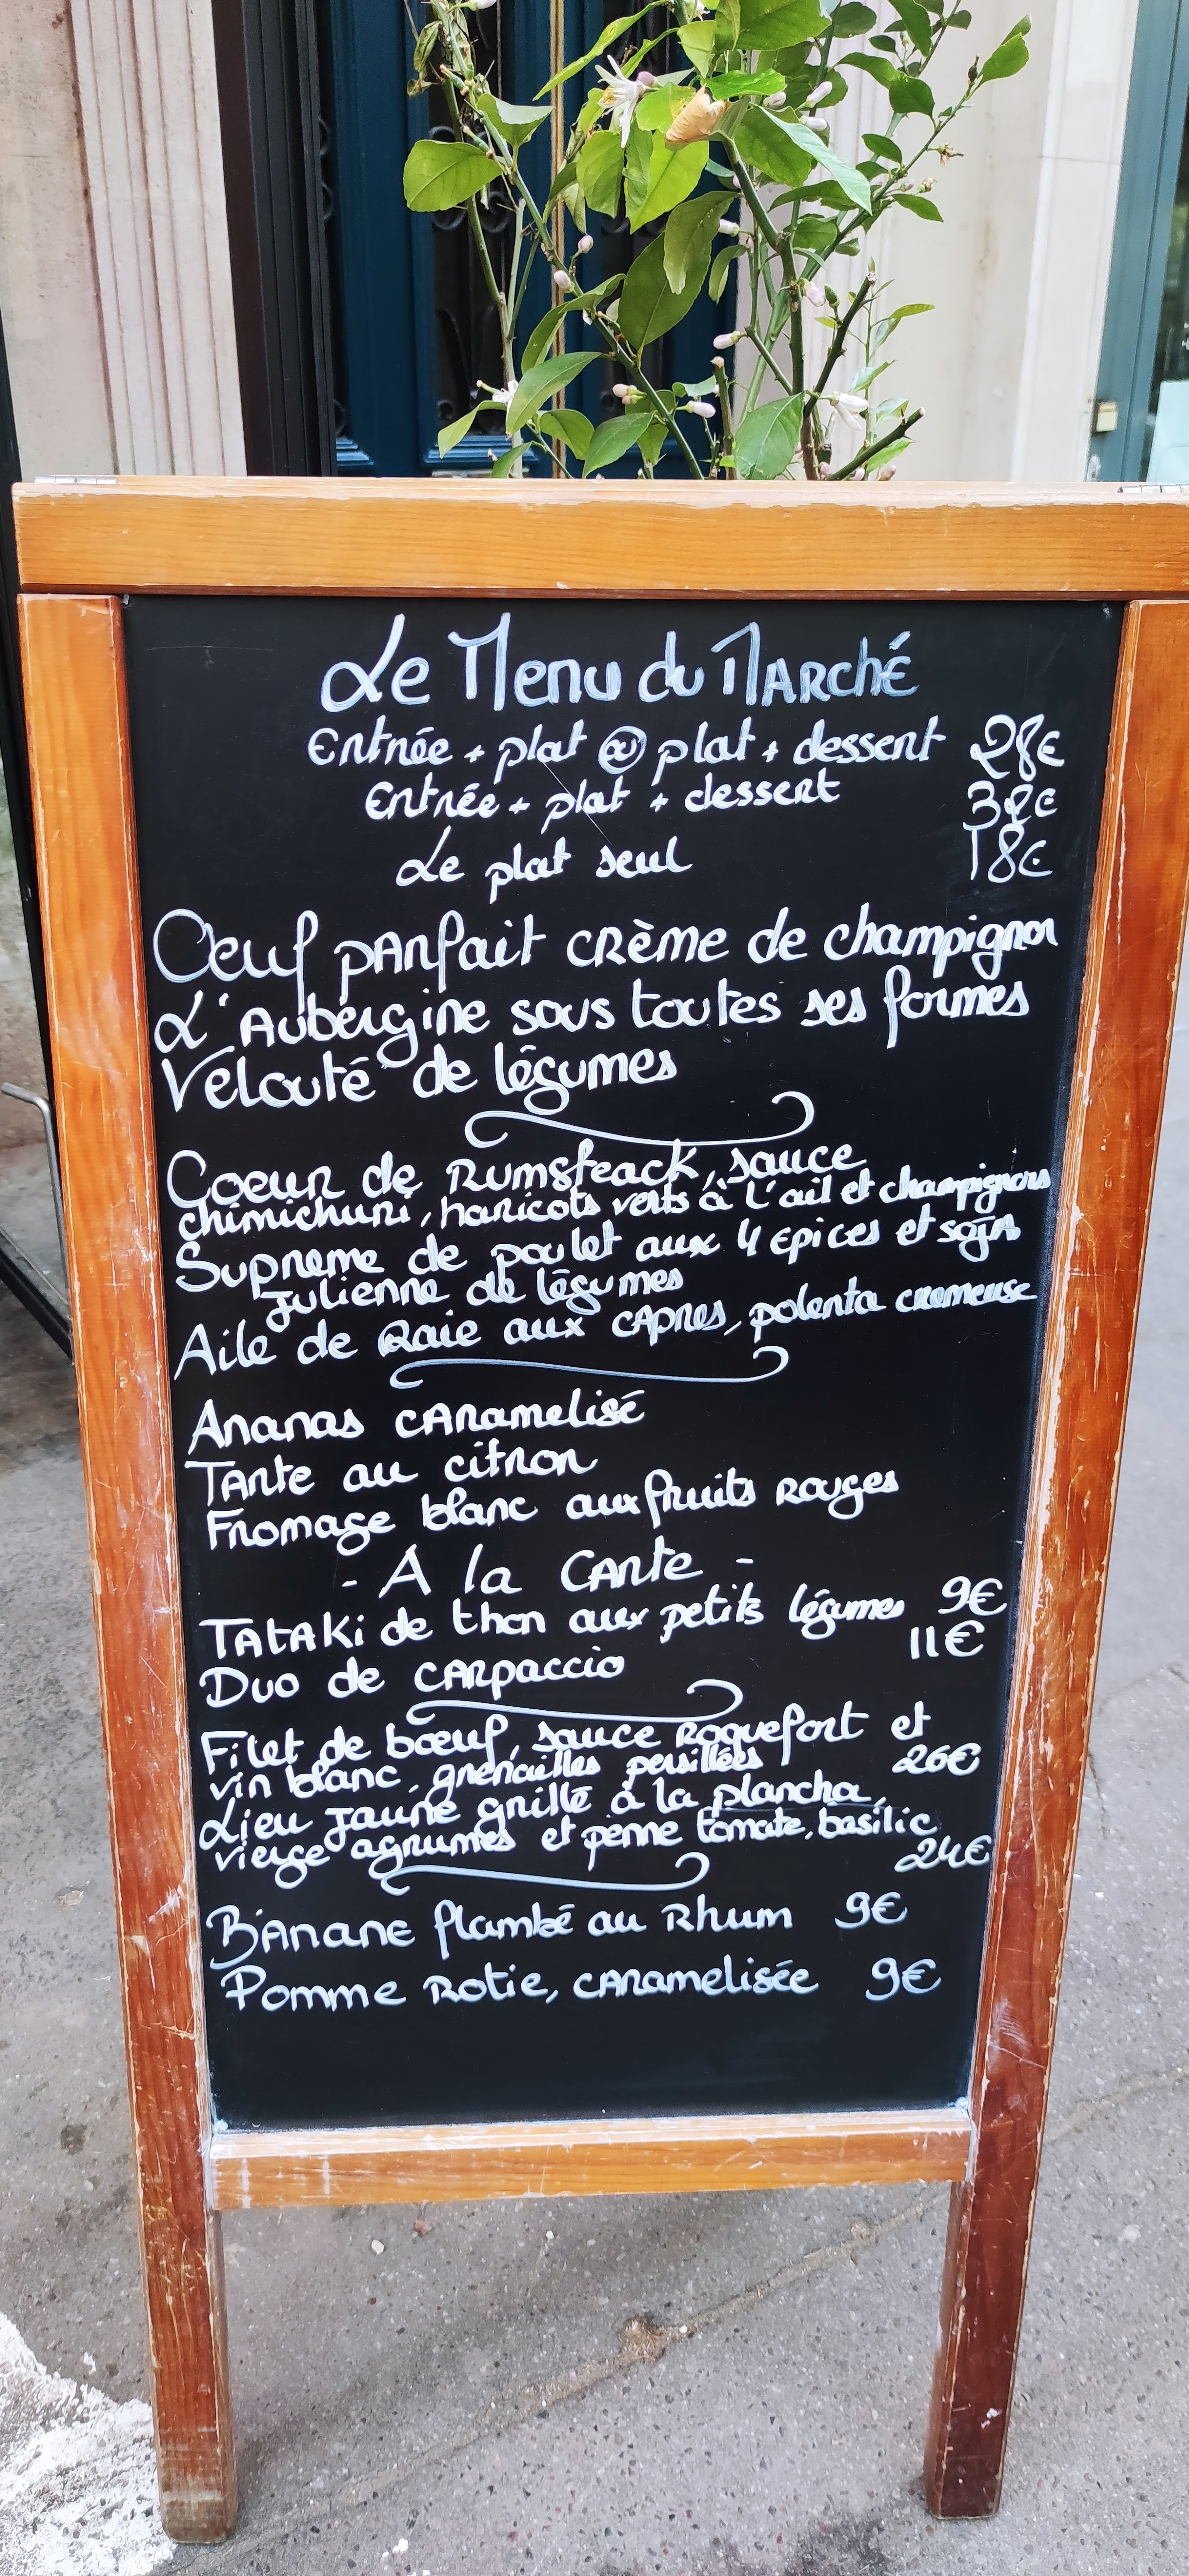 Le Menu du Marché
Entrée + plat ou plat + dessert 28€
Entrée + plat + dessert 32€
Le plat seul 18€
Oeuf parfait crème de champignon
L'Aubergine sous toutes ses formes
Velouté de légumes
Coeur de Rumsteack, sauce
chimichuri, haricots verts à l'ail et champignons
Supreme de poulet aux 4 epices et soja
Julienne de légumes
Aile de Raie aux capres, polenta cremeuse
Ananas caramelisé
Tarte au citron
Fromage blanc aux fruits rouges
- A la Carte -
Tataki de thon aux petits légumes 9€
Duo de carpaccio 11€
Filet de bœuf, sauce Roquefort et
vin blanc, grenailles persillées 26€
Lieu Jaune grillé à la plancha,
vierge agrumes et penne tomate, basilic
24€
Banane flambé au Rhum 9€
Pomme Rotie, caramelisée 9€